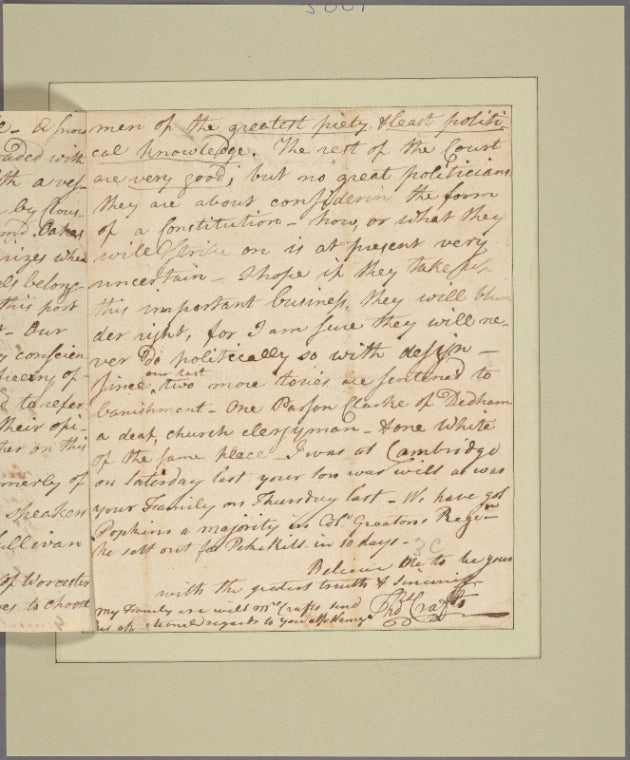 men of the greatest piety & least politi-
cal knowledge. The rest of the Court
are very good; but no great politicians
they are about considering the form
of a Constitution - how, or what they
will strike on is at present very
uncertain - I hope if they take
this important business, they will blun
der right, for I am sure they will ne-
ver do politically so with design -
since our last two more tories are sentenced to
banishment - One Parson Clarke of Dedham
a deaf, church clergyman - & one White
of the same place - I was at Cambridge
on Saturday last your son was well as was
your Family on Thursday last - We have got
Popkins a majority in Col. Greatons Regim
he sett out for Pekskill in 10 days -
Believe me to be your
with the greatest truth & sincerity
Thos Crafts
My Family are well Mrs Crafts send
regards to you
e - A snow
loaded with
th a ves-
by
and Oakes
prizes when
els belong-
this port
r - Our
y conscien
freeing of
e to refer
their opi-
ther on this
merly of
speaken
ullivan
of Worcester
ves to choose